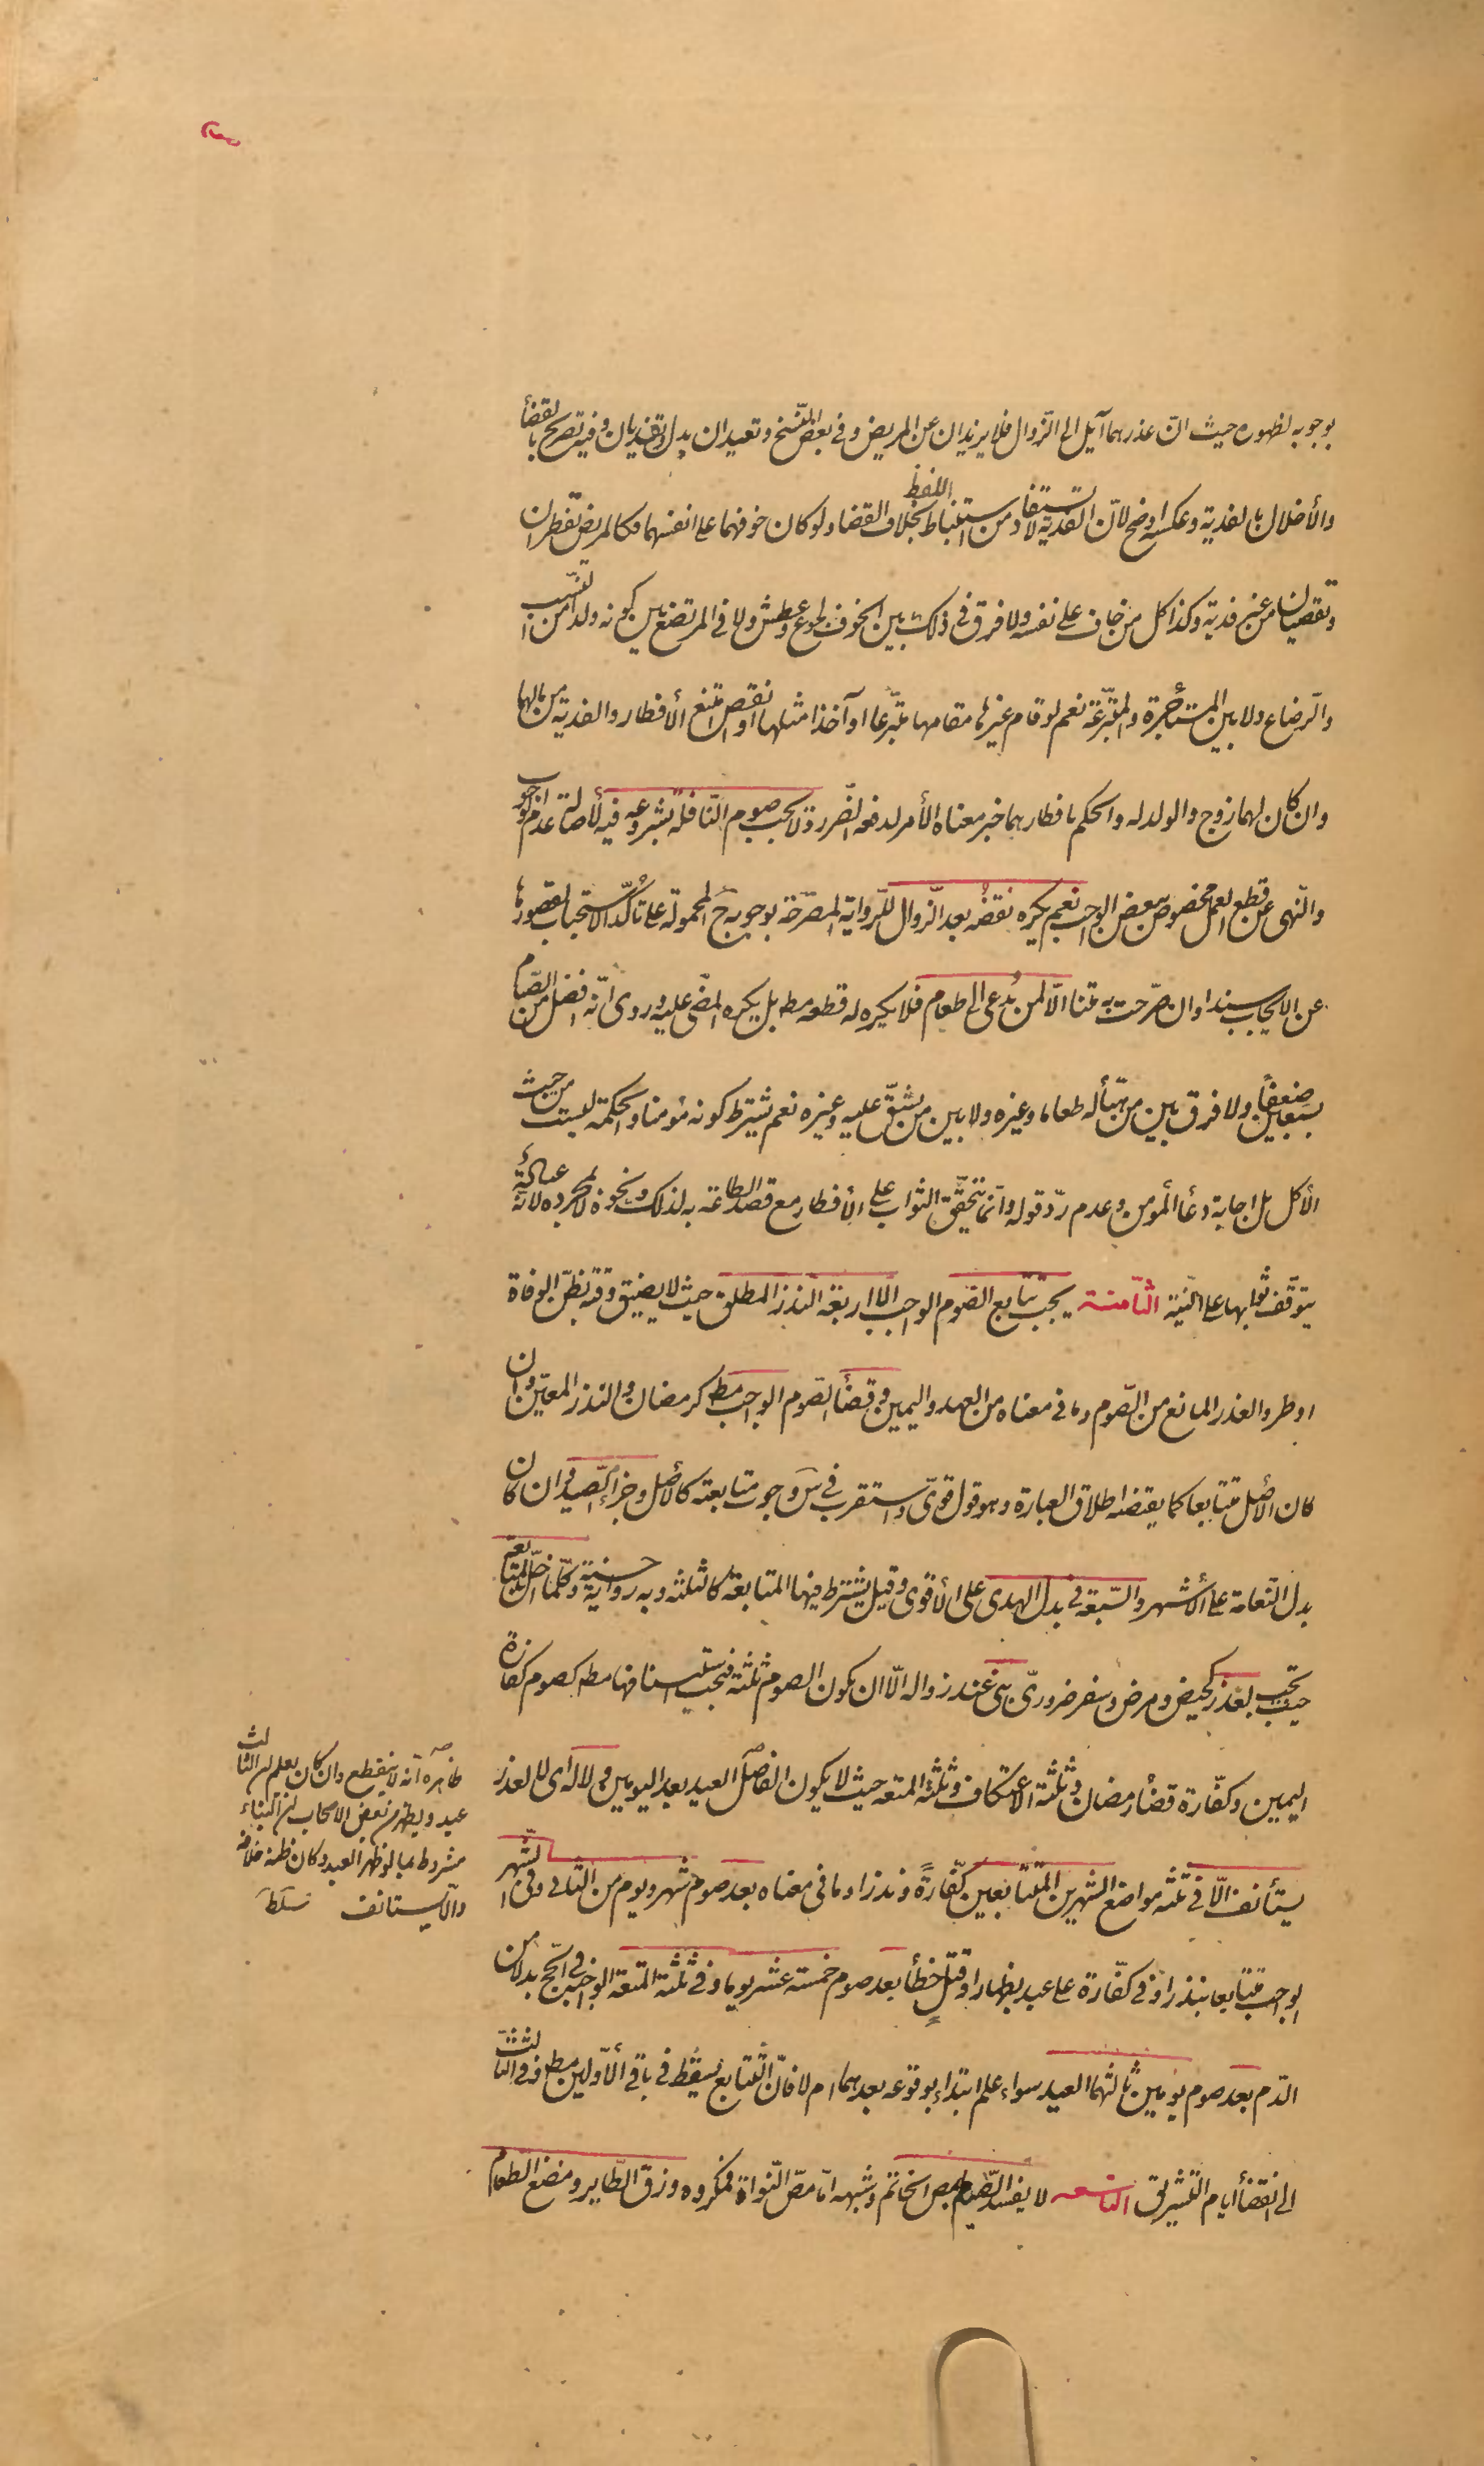 بوجوبه لظهوره حيث انّ عذرهما آيل الى الزّوال فلا يزيدان عن المريض وفي بعض النّسخ وتعيدان بدل وتفديان وفيه تصريح بالقضأ
والأخلال بالفدية وعكسه اوضح لانّ الفدية لا تستفاد من استنباط اللفظ بخلاف القضا ولو كان خوفهما على انفسهما فكالمريض تفطران
وتقضيان من غير فدية وكذا كل من خاف على نفسه ولا فرق في ذلك بين الخوف لجوع وعطش ولا في المرتضع بين كونه ولدا من النّسب
والرّضاع ولا بين المستأجرة والمتبرّعة نعم لو قام غيرها مقامها متبرّعا او آخذا مثلها او انقص امتنع الأفطار والفدية من مالهما
وان كان لهما زوج والولد له والحكم بافطارهما خبر معناه الأمر لدفعه الضّرر ولا يجب صوم النّافلة بشروعه فيه لأصالة عدم الوجوب
والنّهى عن قطع العمل مخصوص ببعض الواجب نعم يكره نقضه بعد الزّوال للرّواية المصرّحة بوجوبه ح المحمولة على تأكّد الاستحباب لقصورها
عن الايجاب سندا وان صرّحت به متنا الّا لمن يُدعى الى طعام فلا يكره له قطعه مط بل يكره المضىّ عليه وروى انّه افضل من الصّيام
سبعين ضعفًا ولا فرق بين من هيّأ له طعاما وغيره ولا بين من يشقّ عليه وغيره نعم يشترط كونه مؤمنا والحكمة ليست من حيث
الأكل بل اجابة دعأ المؤمن وعدم ردّ قوله وانّما يتحقّق الثواب على الأفطار مع قصد الطاعة به لذلك ونحوه لا بمجرده لانّه عبادة
يتوقّف ثوابها على النيّة الثّامنة يجب تتابع الصّوم الواجب الّا اربعة النذر المطلق حيث لا يضيق وقته بظنّ الوفاة
او طروّ العذر المانع من الصّوم وما في معناه من العهد واليمين وقضأ الصّوم الواجب مط كرمضان والنذر المعيّن وان
كان الأصل متتابعا كما يقتضه اطلاق العبارة وهو قول قوىّ واستقرب في س وجوب متابعته كالأصل وجزأ الصّيد وان كان
بدل النّعامة على الأشهر والسّبعة في بدل الهدى على الأقوى وقيل يشترط فيها المتابعة كالثلثة وبه رواية حسنة وكلّما اخلّ بالمتابعة
حيث تجب لعذر كحيض ومرض وسفر ضرورىّ بنى عند زواله الّا ان يكون الصوم ثلثة فيجب استينافها مط كصوم كفارة
اليمين وكفّارة قضأ رمضان وثلثة الاعتكاف وثلثة المتعة حيث لا يكون الفاصل العيد بعد اليومين ولا له اى لا لعذر
يستأنف الّا في ثلثه مواضع الشهرين المتتابعين كفّارةً ونذرا وما في معناه بعد صوم شهر ويوم من الثانى وفي الشّهر
الواجب متتابعا بنذر او في كفّارة على عبد بظهار او قتل خطأ بعد صوم خمسة عشر يوما وفي ثلثة المتعة الواجبة في الحجّ بدلا عن
الدّم بعد صوم يومين ثالثهما العيد سواء علم ابتداء بوقوعه بعدهما ام لا فانّ التّتابع يسقط في باقي الأوّلين مط وفي الثالث
الى انقضأ ايام التشريق التاسعه لا يفسد الصّيام بمص الخاتم وشبهه امّا مصّ النّواة فمكروه وزقّ الطّاير ومضغ الطّعام
ظاهره انه لا ينقطع وان كان يعلم ان الثالث
عيد ويظهر من بعض الاصحاب ان البناء
مشروط بما لو ظهر العيد وكان ظنه خلافه
والّا استانف